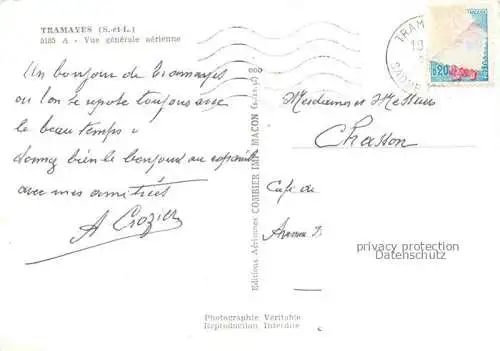 TRAMAYES (S.-et-L.)
5185 A - Vue générale aérienne
Un bonjour de Tramayes
ou l'on se repose toujours avec
le beau temps
donnez bien le bonjour au
avec mes amitiés
A Crozier
Editions Aériennes COMBIER IMP. MACON (S.-et-L.)
Photographie Véritable
Reproduction Interdite
TRAM
SAONE
0,20
Mesdames et Messieurs
Chasson
Café de
privacy protection
Datenschutz